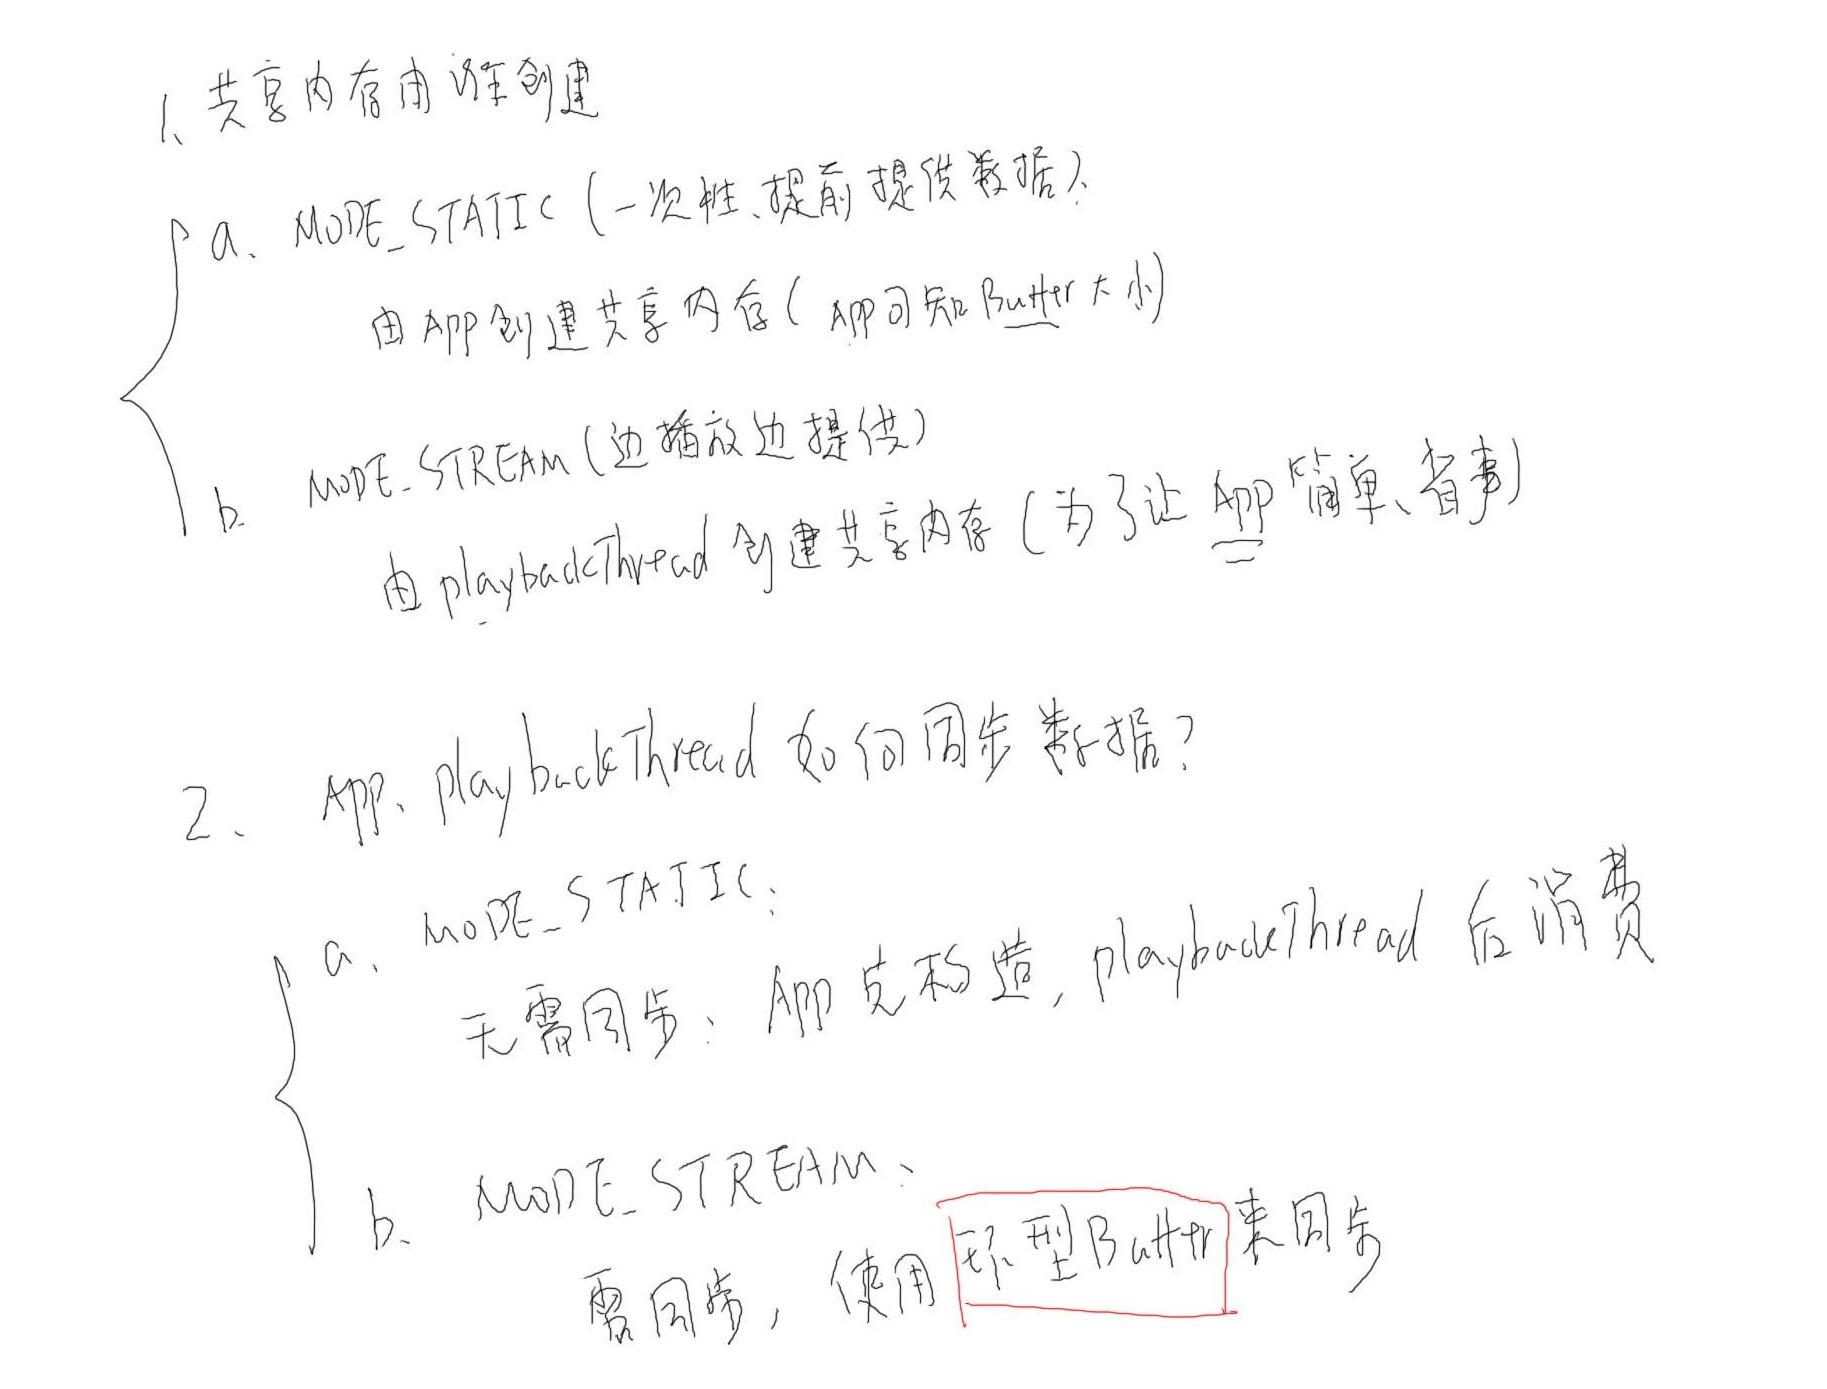 1、共享内存由谁创建
a、MODE_STATIC (一次性、提前提供数据)、
由App创建共享内存 (APP可知Buffer大小)
b、MODE_STREAM (边播放边提供)
由playbackThread创建共享内存 (为了让App简单、省事)
2、App、playbackThread如何同步数据?
a、MODE_STATIC:
无需同步: App先构造, playbackThread后消费
b、MODE_STREAM:
需同步, 使用环型Buffer来同步